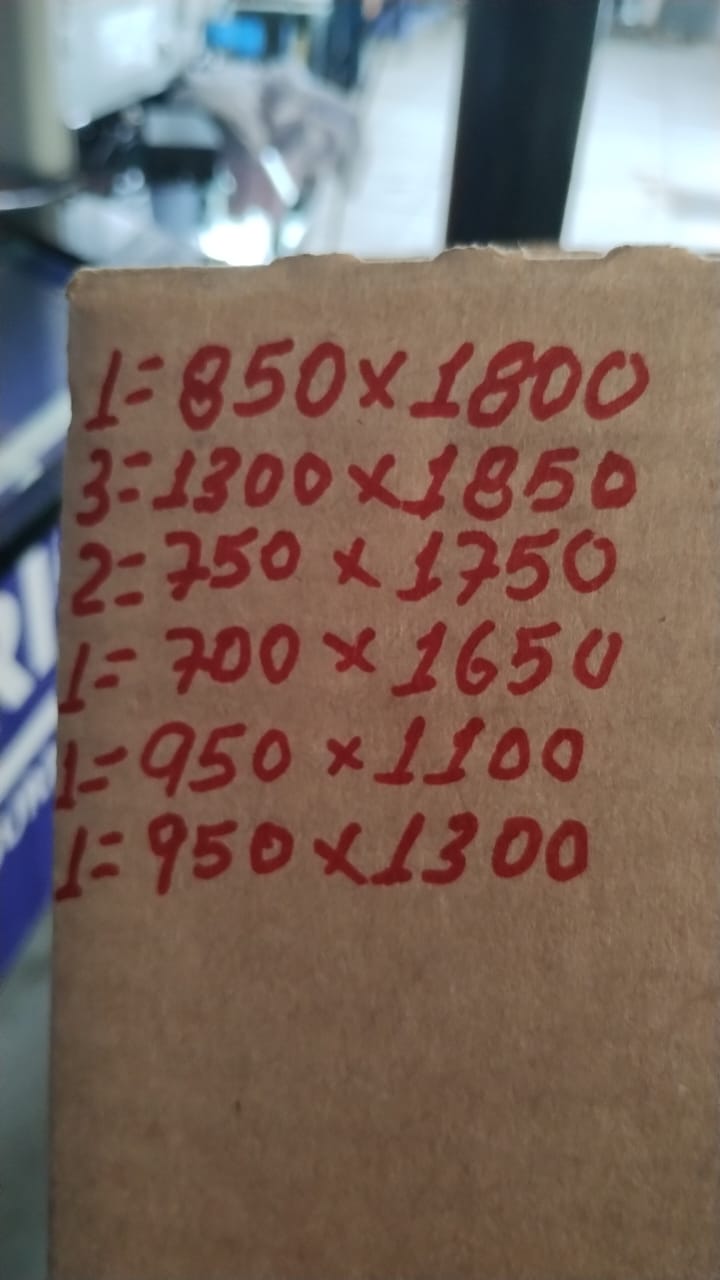 1=850x1800
3=1300x1850
2=750x1750
1=700x1650
1=950x1100
1=950x1300